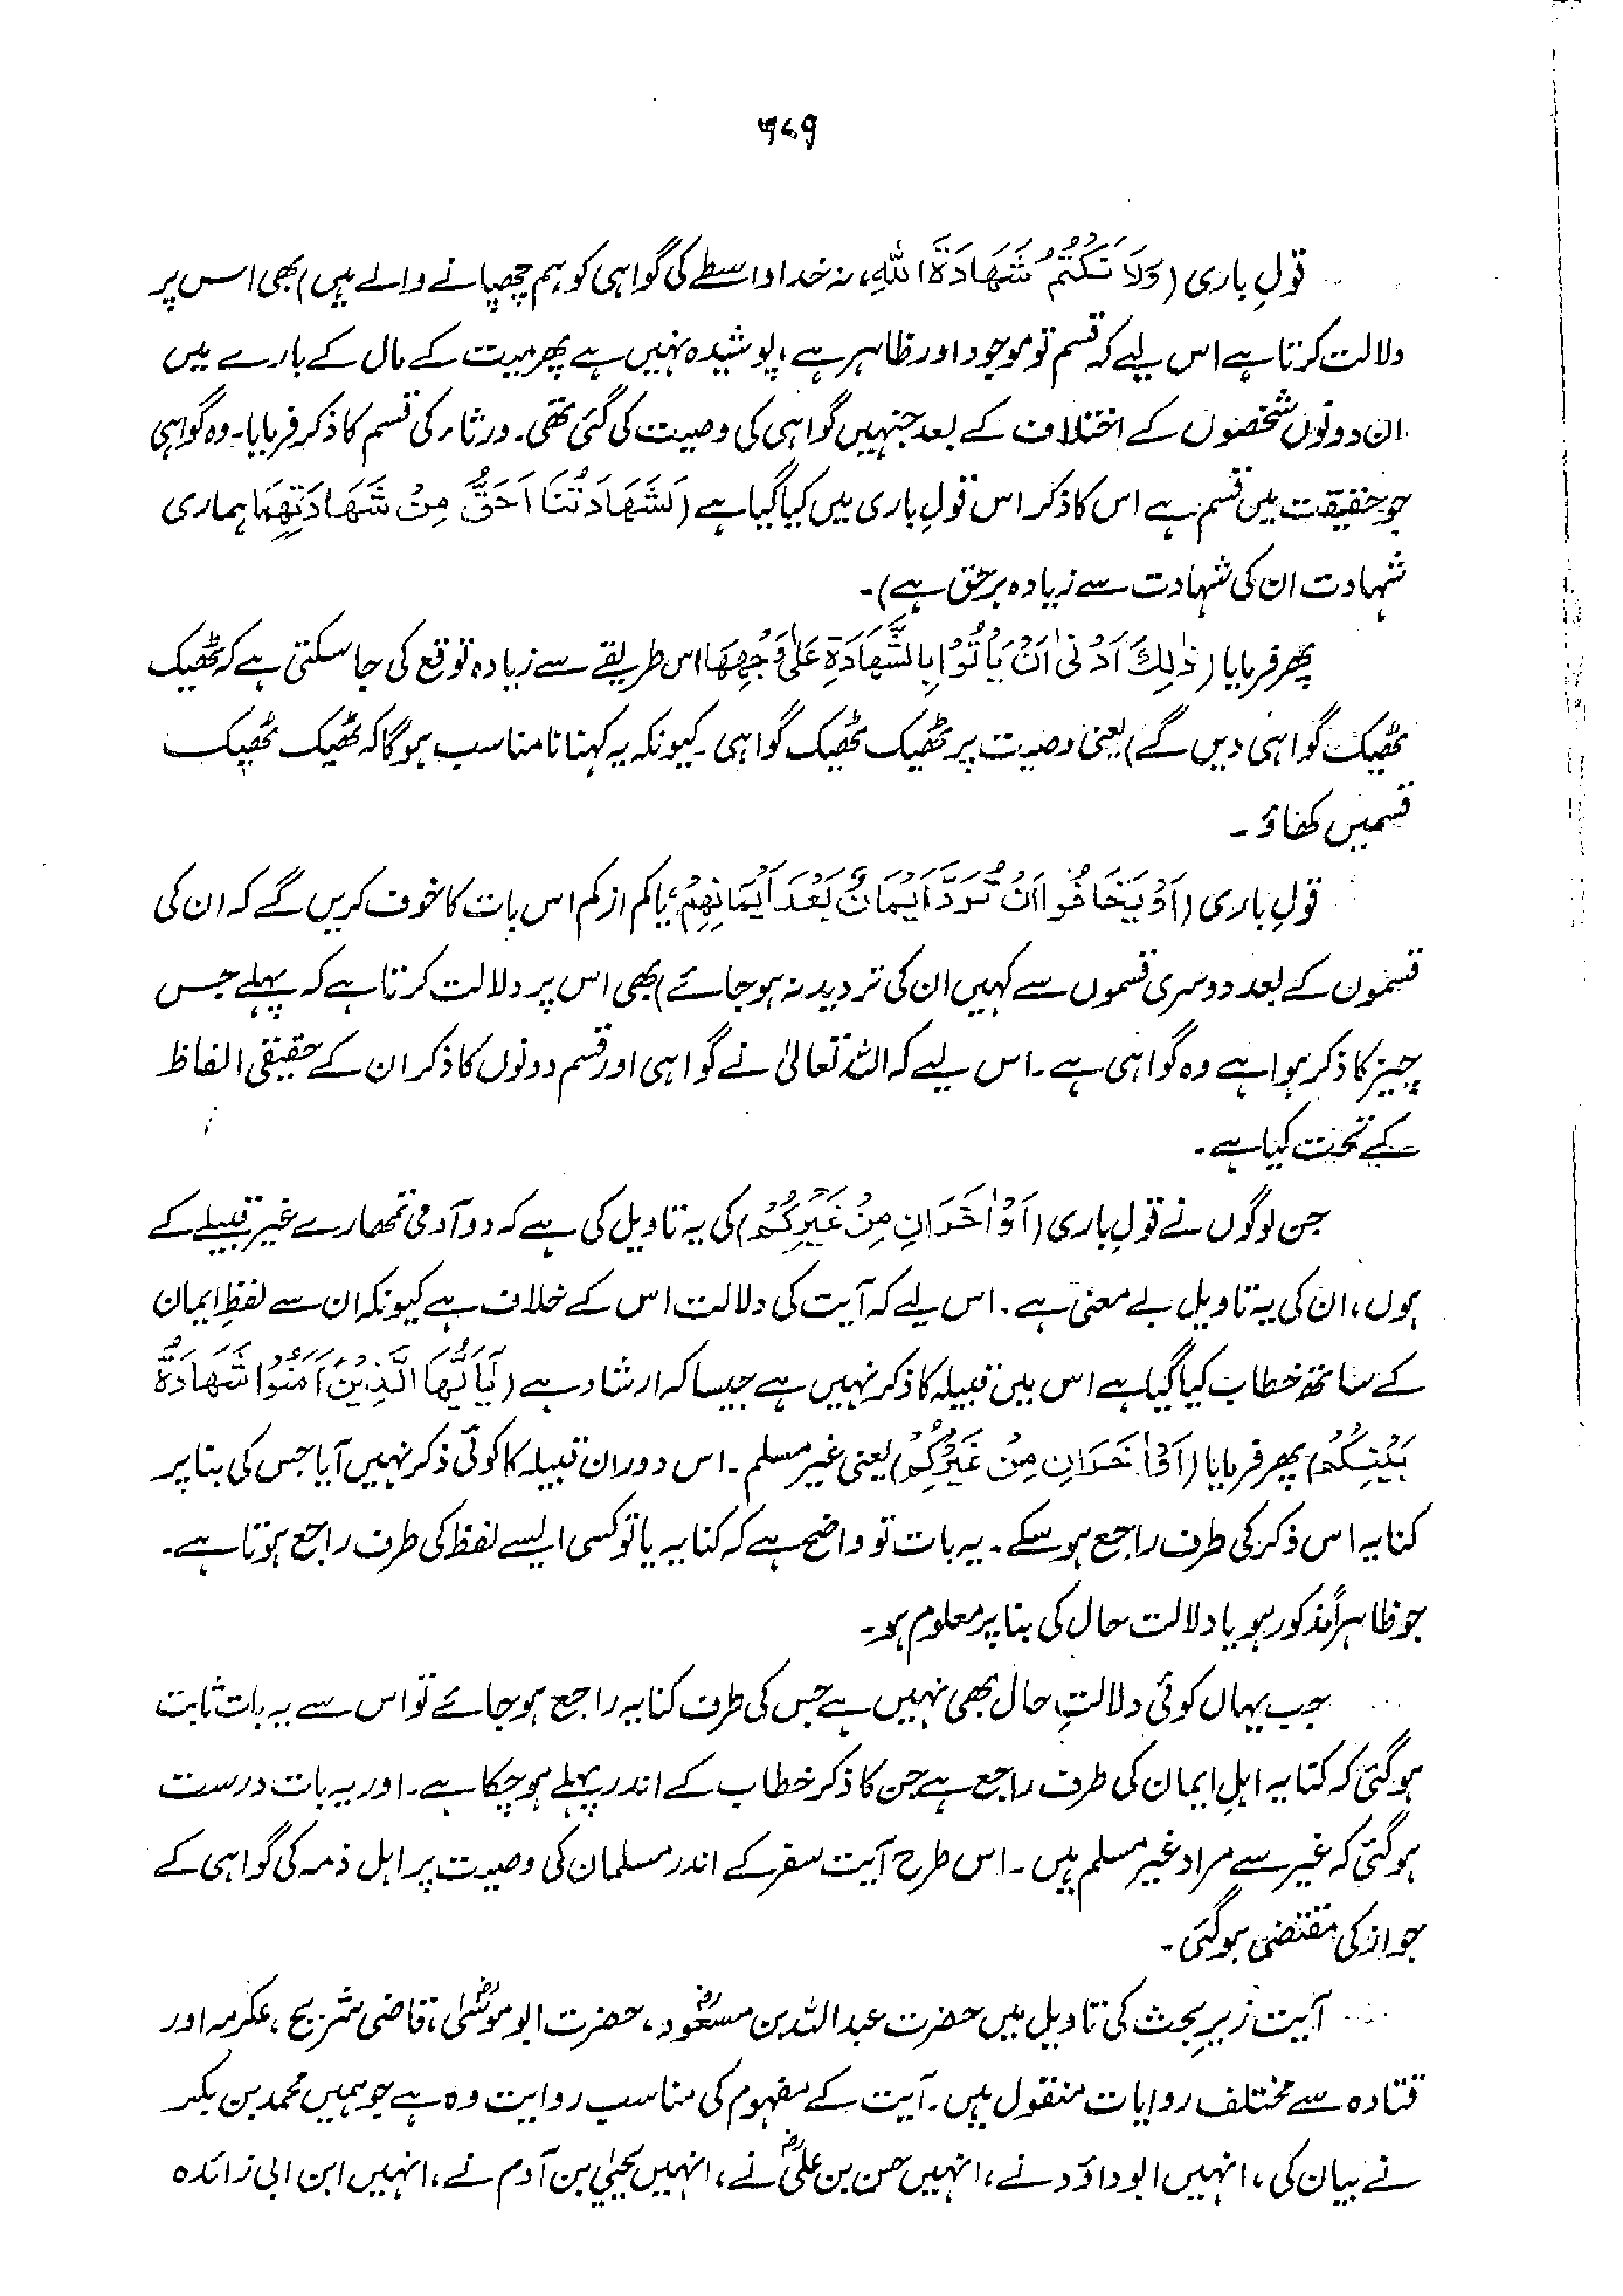 ۶۷۹
قولِ باری (وَلَا نَكْتُمُ شَهَادَةَ اللهِ، نہ خدا واسطے کی گواہی کو ہم چھپانے والے ہیں) بھی اس پر
دلالت کرتا ہے اس لیے کہ قسم تو موجود اور ظاہر ہے، پوشیدہ نہیں ہے پھر میت کے مال کے بارے میں
ان دونوں شخصوں کے اختلاف کے بعد جنہیں گواہی کی وصیت کی گئی تھی۔ ورثاء کی قسم کا ذکر فرمایا۔ وہ گواہی
جو حقیقت میں قسم ہے اس کا ذکر اس قولِ باری میں کیا گیا ہے (لَشَهَادَتُنَا اَحَقُّ مِنْ شَهَادَتِهِمَا ہماری
شہادت ان کی شہادت سے زیادہ برحق ہے)۔
پھر فرمایا (ذٰلِكَ اَدْنٰى اَنْ يَّأْتُوْا بِالشَّهَادَةِ عَلٰى وَجْهِهَا اس طریقے سے زیادہ توقع کی جا سکتی ہے کہ ٹھیک
ٹھیک گواہی دیں گے) یعنی وصیت پر ٹھیک ٹھیک گواہی۔ کیونکہ یہ کہنا نامناسب ہوگا کہ ٹھیک ٹھیک
قسمیں کھاؤ۔
قولِ باری (اَوْ يَخَافُوا اَنْ تُرَدَّ اَيْمَانٌ بَعْدَ اَيْمَانِهِمْ، یا کم از کم اس بات کا خوف کریں گے کہ ان کی
قسموں کے بعد دوسری قسموں سے کہیں ان کی تردید نہ ہو جائے) بھی اس پر دلالت کرتا ہے کہ پہلے جس
چیز کا ذکر ہوا ہے وہ گواہی ہے۔ اس لیے کہ اللہ تعالیٰ نے گواہی اور قسم دونوں کا ذکر ان کے حقیقی الفاظ
کے تحت کیا ہے۔
جن لوگوں نے قولِ باری (اَوْ اٰخَرَانِ مِنْ غَيْرِكُمْ) کی یہ تاویل کی ہے کہ دو آدمی تمھارے غیر قبیلے کے
ہوں، ان کی یہ تاویل بے معنی ہے۔ اس لیے کہ آیت کی دلالت اس کے خلاف ہے کیونکہ ان سے لفظِ ایمان
کے ساتھ خطاب کیا گیا ہے اس میں قبیلہ کا ذکر نہیں ہے جیسا کہ ارشاد ہے (يَآ اَيُّهَا الَّذِيْنَ اٰمَنُوْا شَهَادَةُ
بَيْنِكُمْ) پھر فرمایا (اَوْ اٰخَرَانِ مِنْ غَيْرِكُمْ) یعنی غیر مسلم۔ اس دوران قبیلہ کا کوئی ذکر نہیں آیا جس کی بنا پر
کنایہ اس ذکر کی طرف راجع ہو سکے۔ یہ بات تو واضح ہے کہ کنایہ یا تو کسی ایسے لفظ کی طرف راجع ہوتا ہے۔
جو ظاہراً مذکور ہو یا دلالت حال کی بنا پر معلوم ہو۔
جب یہاں کوئی دلالتِ حال بھی نہیں ہے جس کی طرف کنایہ راجع ہو جائے تو اس سے یہ بات ثابت
ہو گئی کہ کنایہ اہلِ ایمان کی طرف راجع ہے جن کا ذکر خطاب کے اندر پہلے ہو چکا ہے۔ اور یہ بات درست
ہو گئی کہ غیر سے مراد غیر مسلم ہیں۔ اس طرح آیت سفر کے اندر مسلمان کی وصیت پر اہل ذمہ کی گواہی کے
جواز کی مقتضی ہو گئی۔
آیت زیرِ بحث کی تاویل میں حضرت عبداللہ بن مسعودؓ، حضرت ابو موسٰیؓ، قاضی شریح، عکرمہ اور
قتادہ سے مختلف روایات منقول ہیں۔ آیت کے مفہوم کی مناسب روایت وہ ہے جو ہمیں محمد بن بکر
نے بیان کی، انہیں ابو داؤد نے، انہیں حسن بن علیؓ نے، انہیں یحییٰ بن آدم نے، انہیں ابن ابی زائدہ